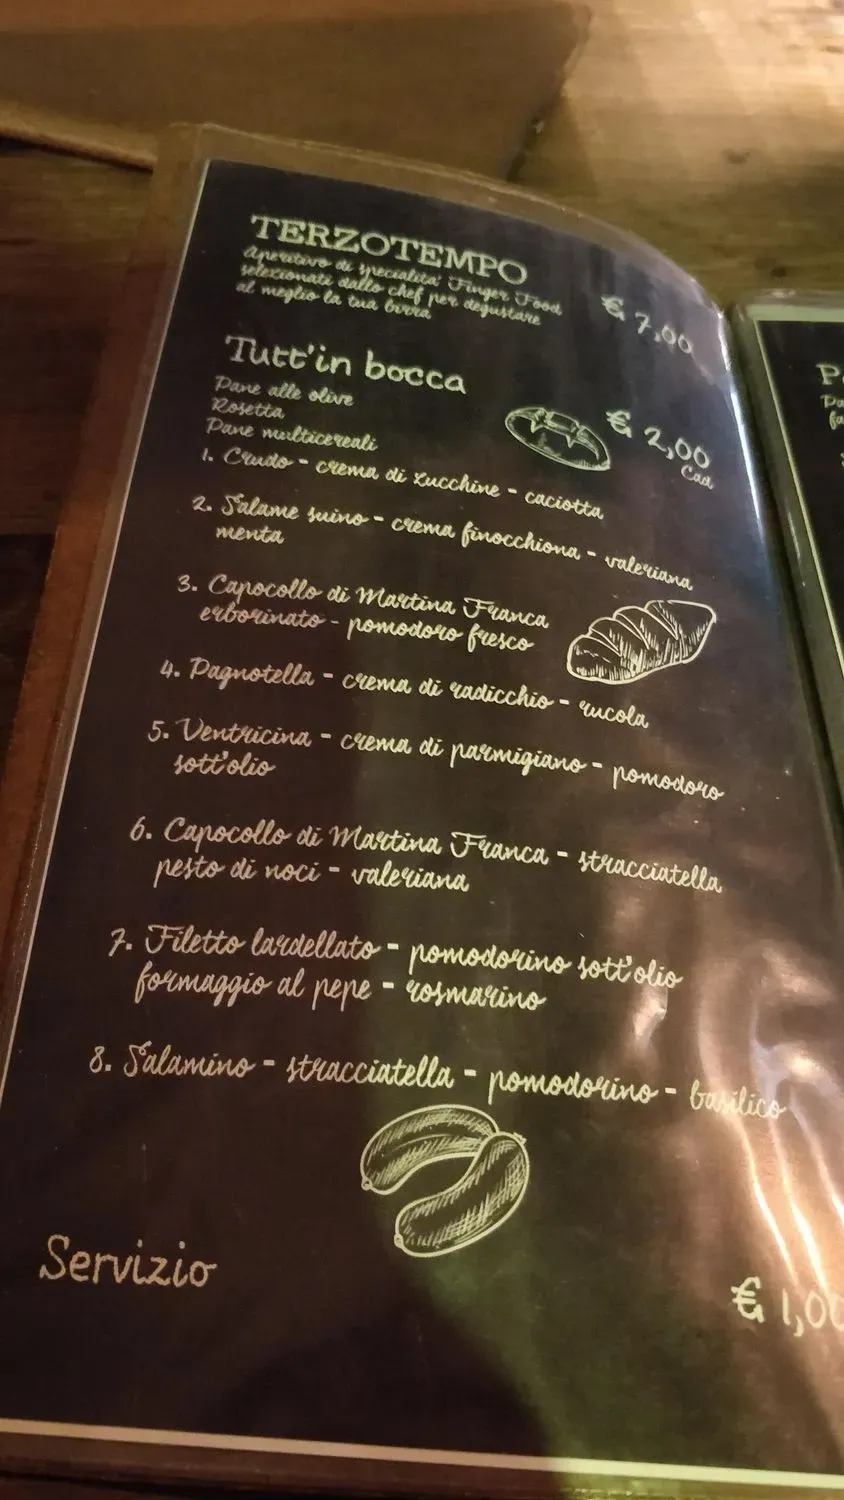 TERZOTEMPO
Aperitivo di specialita' Finger Food
selezionati dallo chef per degustare
al meglio la tua birra
€ 7,00
Tutt'in bocca
Pane alle olive
Rosetta
Pane multicereali
€ 2,00
Cad
1. Crudo - crema di zucchine - caciotta
2. Salame suino - crema finocchiona - valeriana
menta
3. Capocollo di Martina Franca
erborinato - pomodoro fresco
4. Pagnotella - crema di radicchio - rucola
5. Ventricina - crema di parmigiano - pomodoro
sott'olio
6. Capocollo di Martina Franca - stracciatella
pesto di noci - valeriana
7. Filetto lardellato - pomodorino sott'olio
formaggio al pepe - rosmarino
8. Salamino - stracciatella - pomodorino - basilico
Servizio
€ 1,00